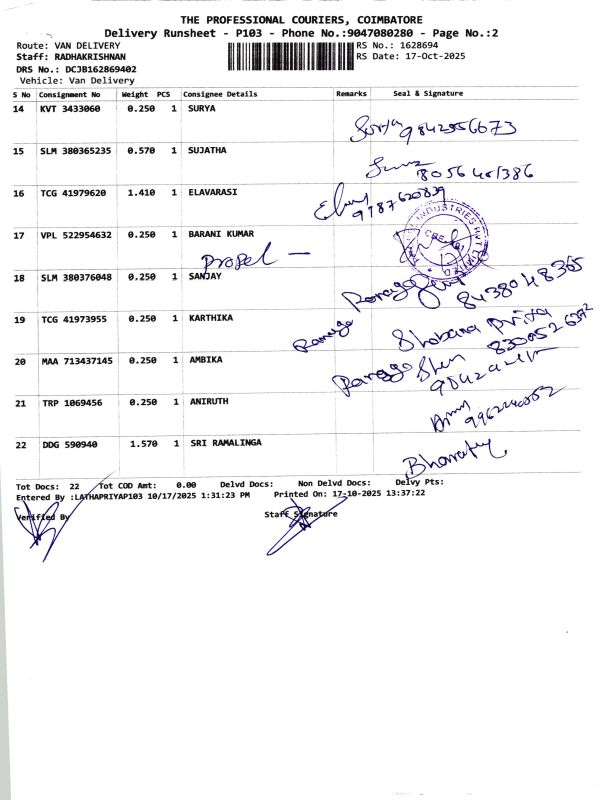 THE PROFESSIONAL COURIERS, COIMBATORE
Delivery Runsheet - P103 - Phone No.:9047080280 - Page No.:2
Route: VAN DELIVERY RS No.: 1628694
Staff: RADHAKRISHNAN RS Date: 17-Oct-2025
DRS No.: DCJB162869402
Vehicle: Van Delivery
S No Consignment No Weight PCS Consignee Details Remarks Seal & Signature
14 KVT 3433060 0.250 1 SURYA
Surya 9842556673
15 SLM 380365235 0.570 1 SUJATHA
16 TCG 41979620 1.410 1 ELAVARASI
9787620839
17 VPL 522954632 0.250 1 BARANI KUMAR
Propel —
18 SLM 380376048 0.250 1 SANJAY
8438048365
19 TCG 41973955 0.250 1 KARTHIKA
Shobana Priya
20 MAA 713437145 0.250 1 AMBIKA
21 TRP 1069456 0.250 1 ANIRUTH
22 DDG 590940 1.570 1 SRI RAMALINGA
Bharathy
Tot Docs: 22 Tot COD Amt: 0.00 Delvd Docs: Non Delvd Docs: Delvy Pts:
Entered By :LATHAPRIYAP103 10/17/2025 1:31:23 PM Printed On: 17-10-2025 13:37:22
Verified By Staff Signature